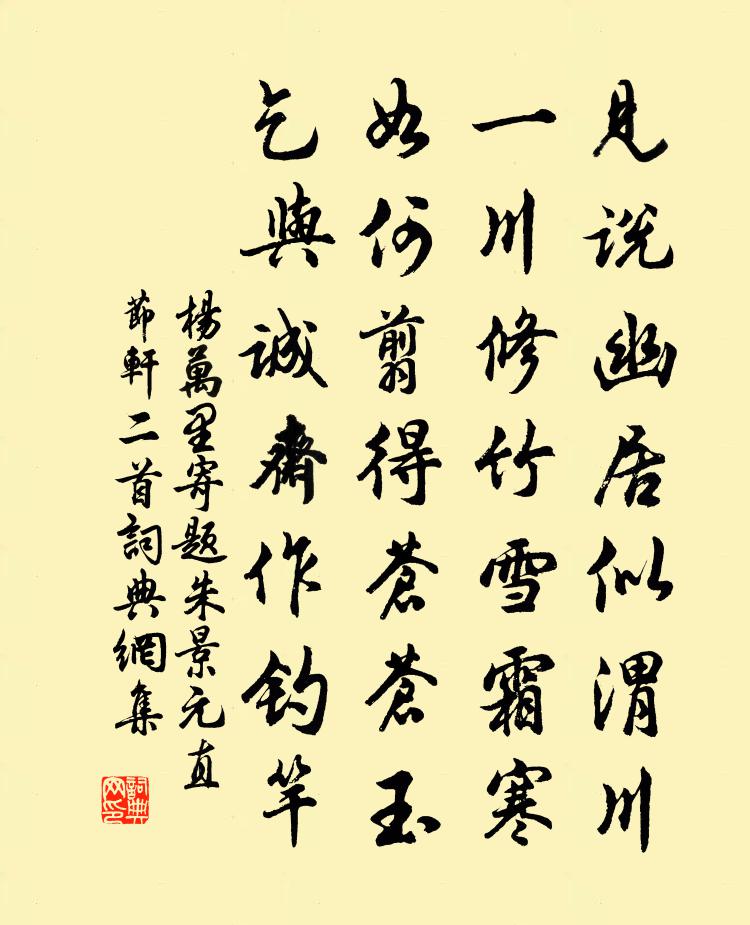 見説幽居似渭川
一川修竹雪霜寒
如何翦得蒼蒼玉
乞與誠齋作釣竿
楊萬里寄題朱景元直
節軒二首詞典網集
詞典
网印